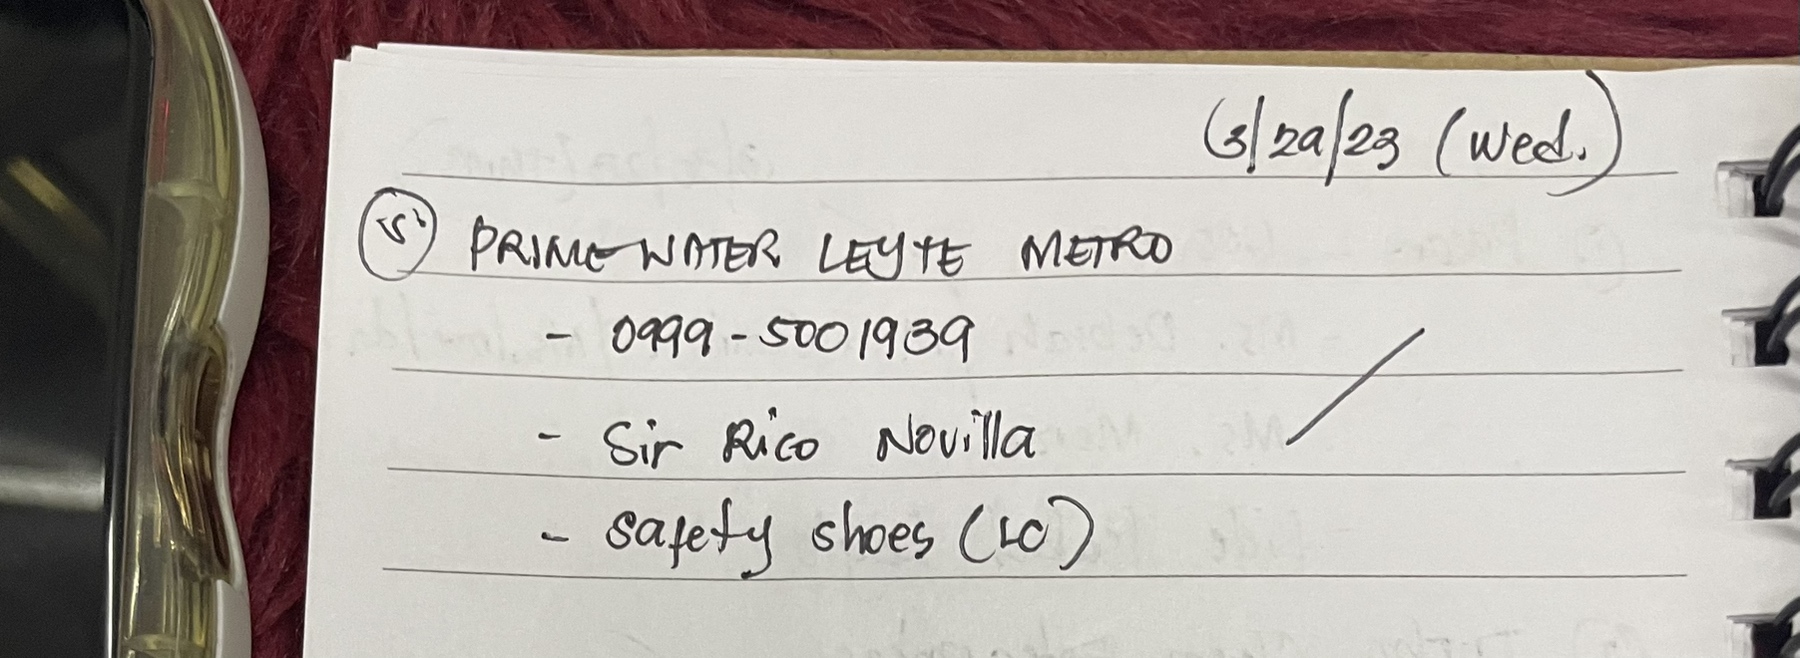 3/29/23 (Wed.)
5 PRIMEWATER LEYTE METRO
- 0999-5001939
- Sir Rico Novilla
- safety shoes (LC)